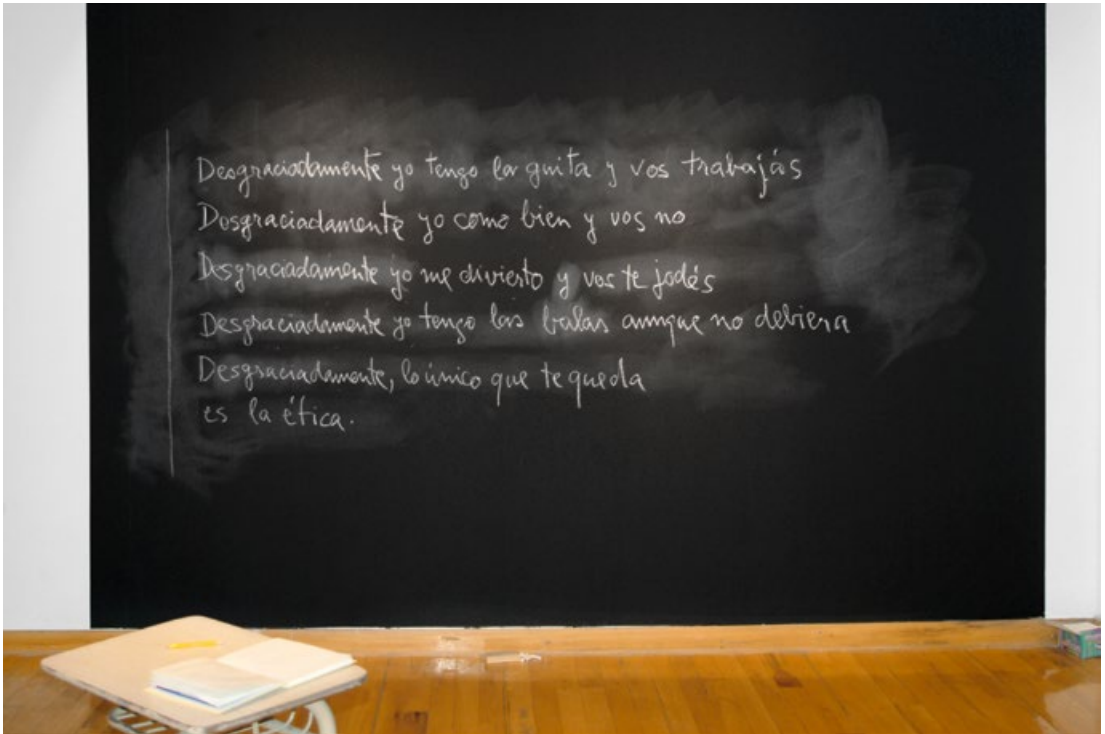 Desgraciadamente yo tengo la guita y vos trabajás
Desgraciadamente yo como bien y vos no
Desgraciadamente yo me divierto y vos te jodés
Desgraciadamente yo tengo las balas aunque no debiera
Desgraciadamente, lo único que te queda
es la ética.